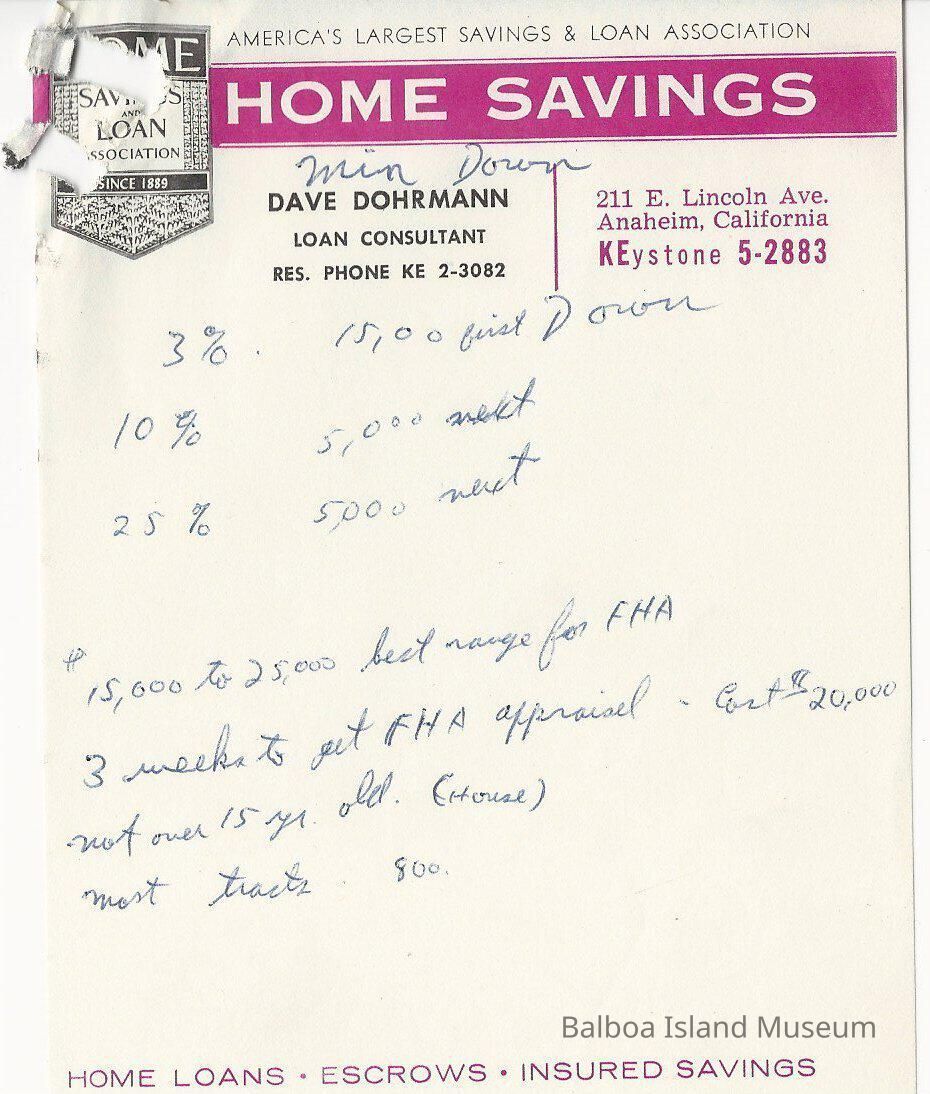 AMERICA'S LARGEST SAVINGS & LOAN ASSOCIATION
HOME
SAVINGS
AND
LOAN
ASSOCIATION
SINCE 1889
HOME SAVINGS
Min Down
DAVE DOHRMANN
LOAN CONSULTANT
RES. PHONE KE 2-3082
211 E. Lincoln Ave.
Anaheim, California
KEystone 5-2883
3% . 15,00 first Down
10% 5,000 next
25% 5,000 next
$ 15,000 to 25,000 best range for FHA
3 weeks to get FHA appraisel - Cost $20,000
not over 15 yr. old. (House)
most tracts . 800.
Balboa Island Museum
HOME LOANS • ESCROWS • INSURED SAVINGS